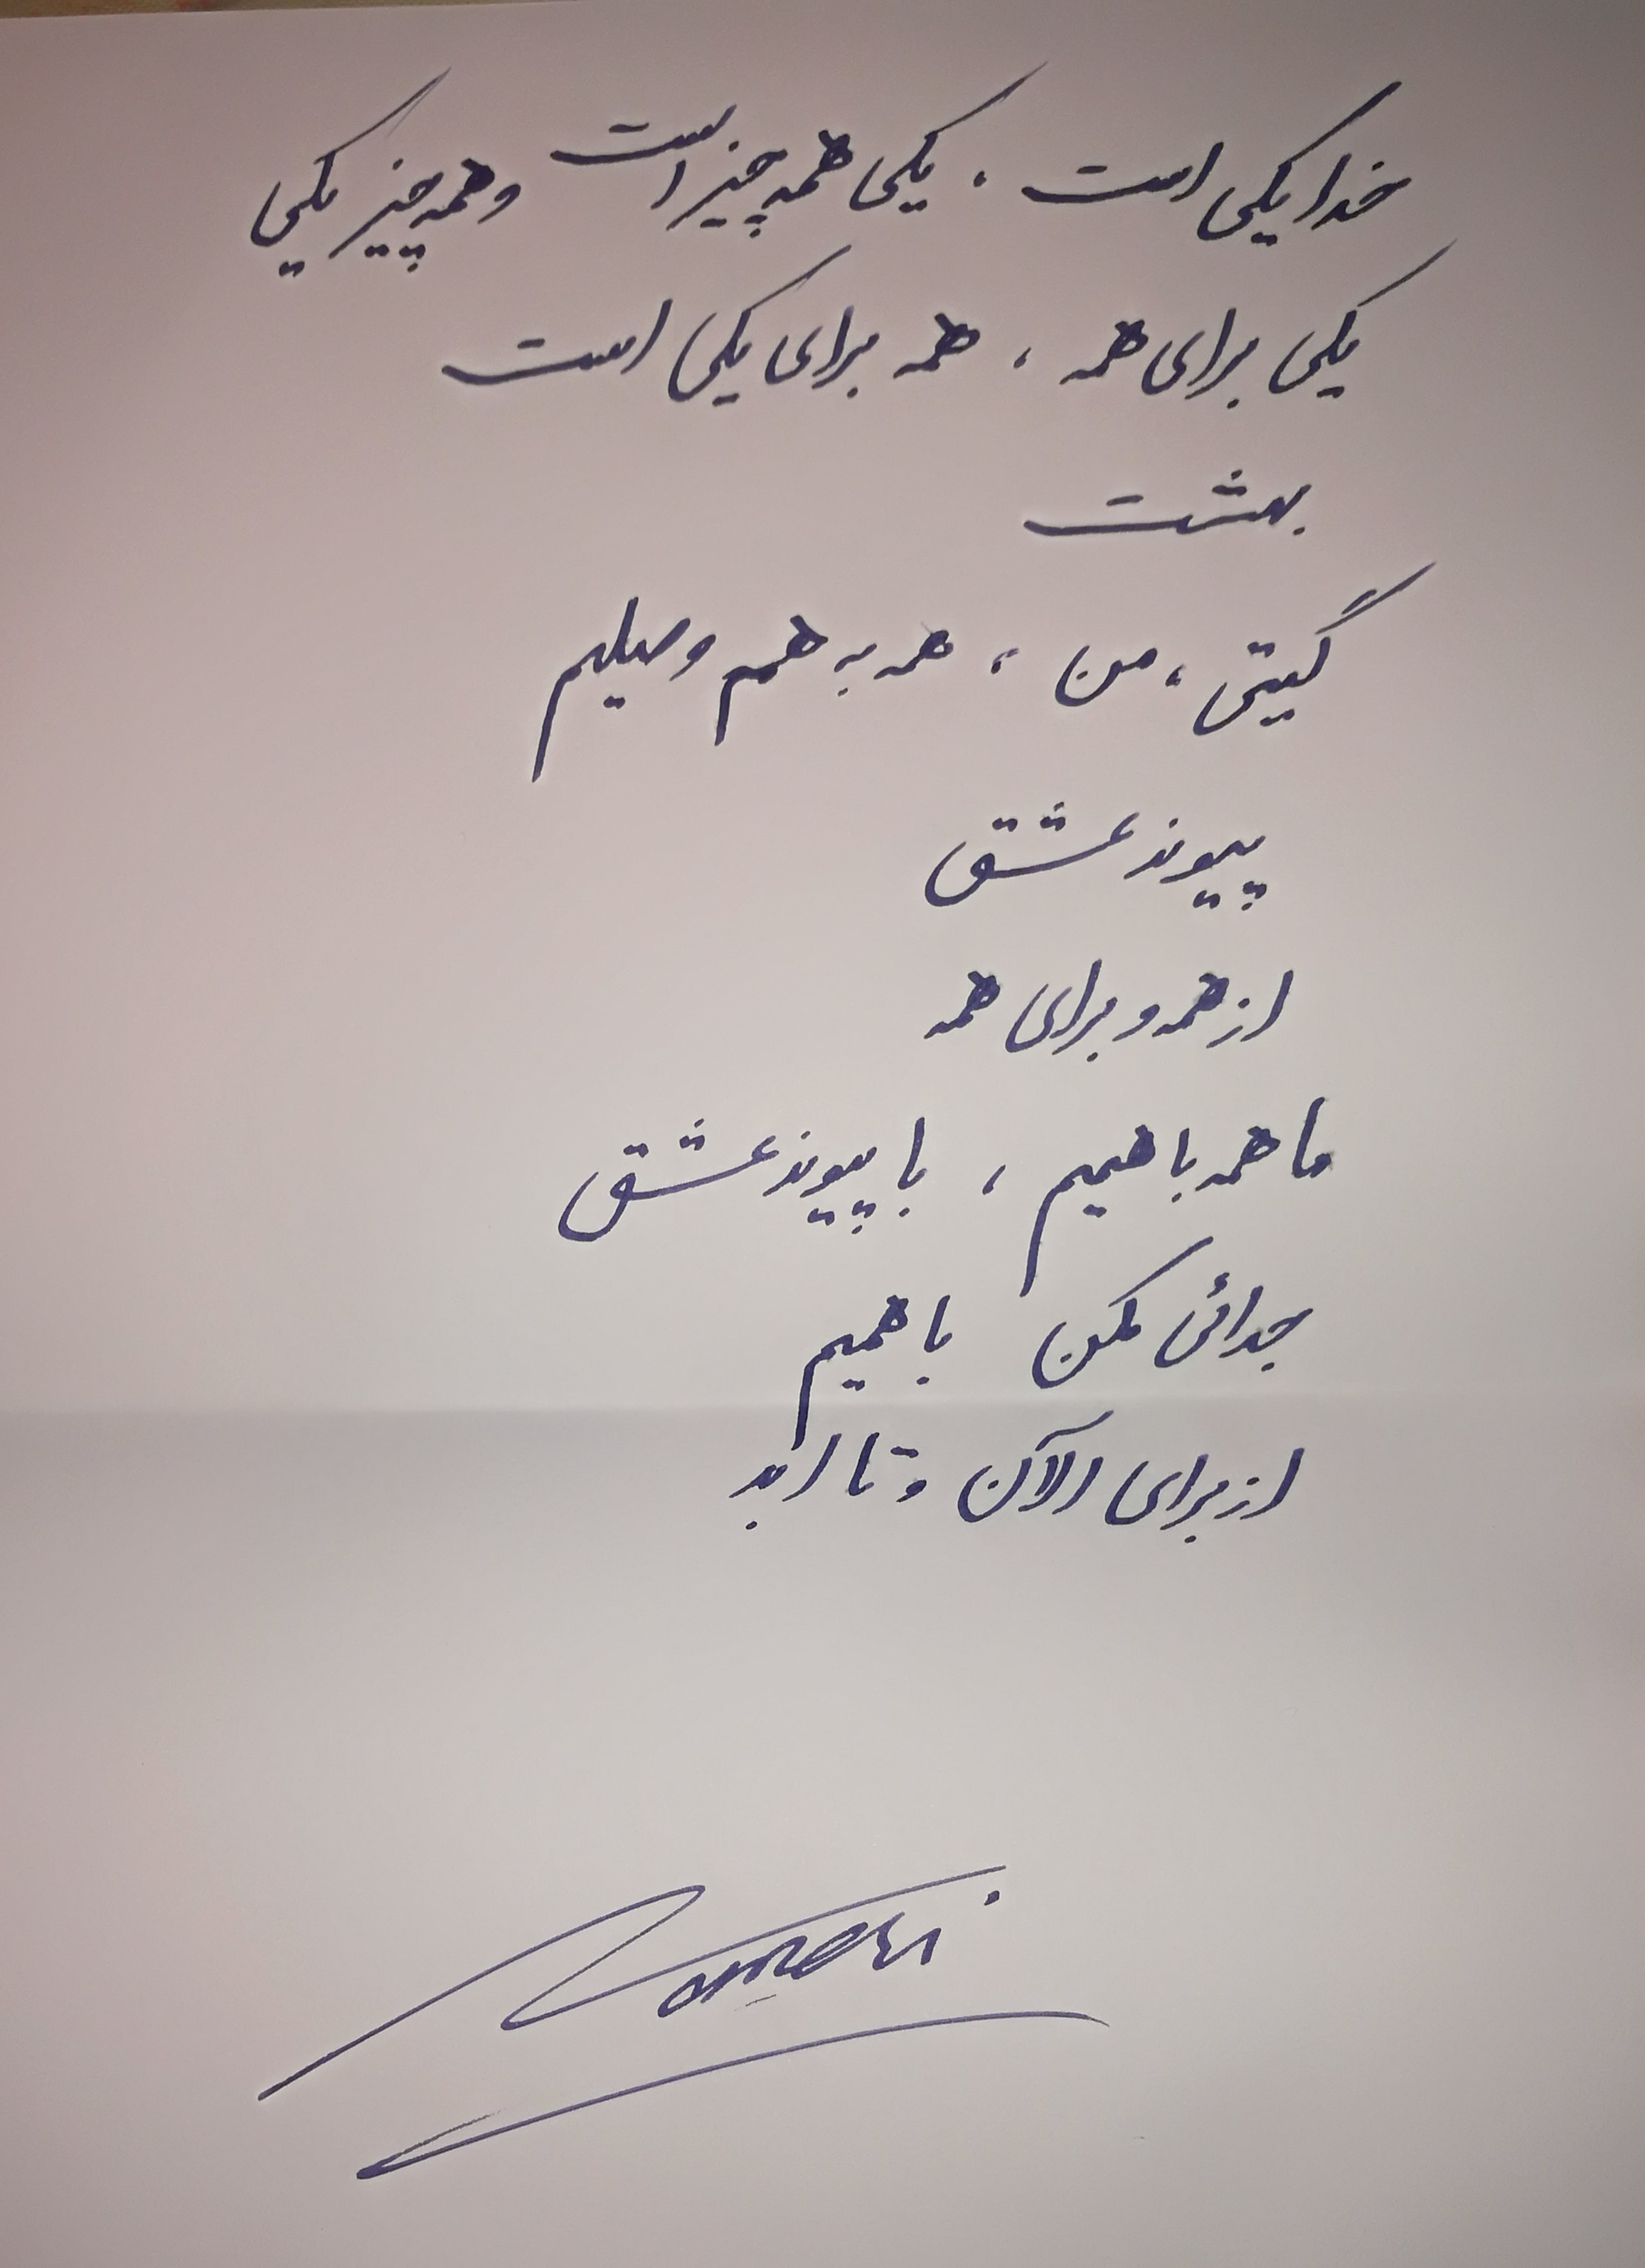 خدا یکی است، یکی همه چیز است و همه چیز یکی
یکی برای همه، همه برای یکی است
بهشت
گیتی، من، همه به هم وصلیم
پیوند عشق
از همه و برای همه
ما همه با همیم، با پیوند عشق
جدائی مکن با همیم
از برای الآن و تا ابد